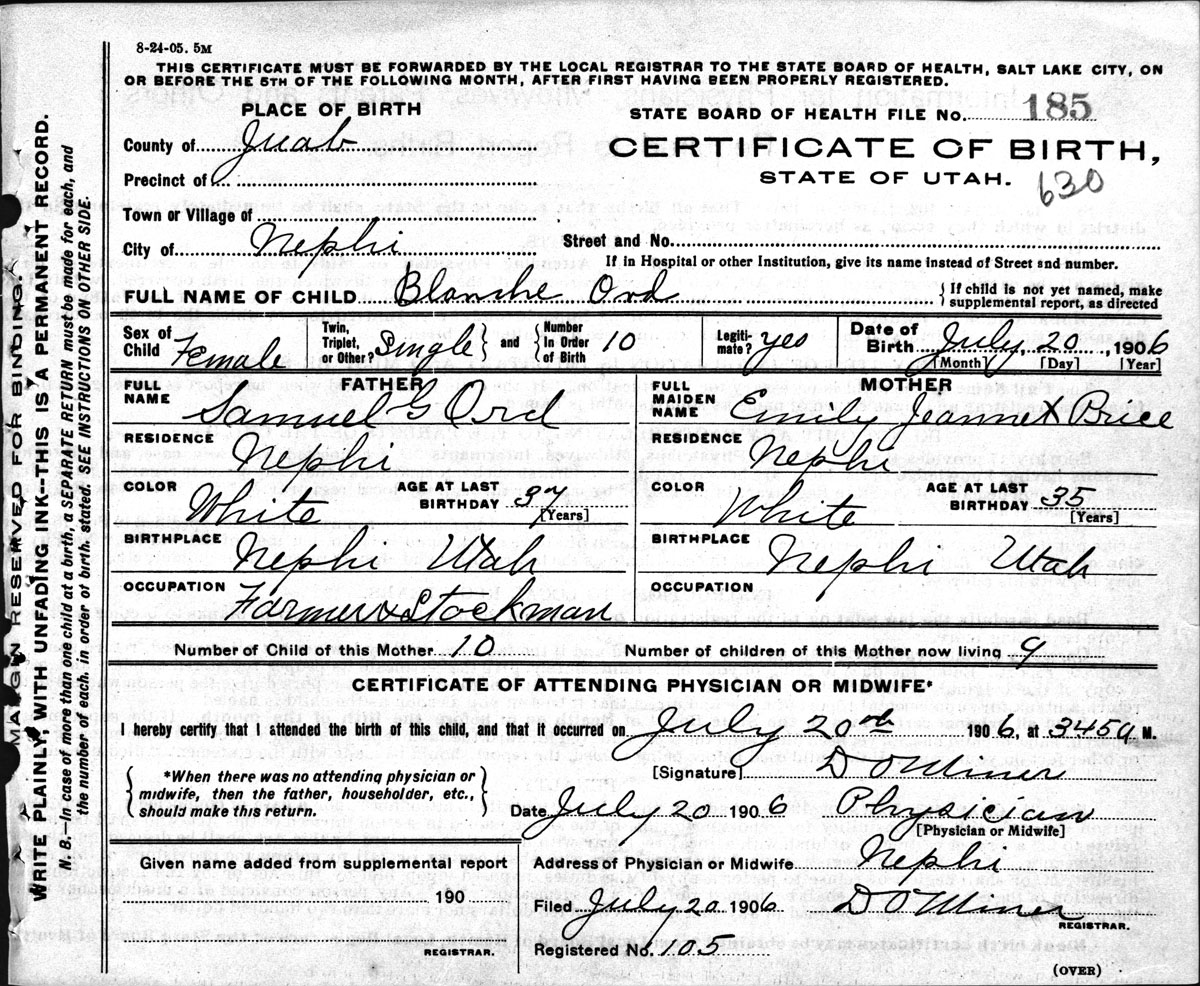 8-24-05. 5M
THIS CERTIFICATE MUST BE FORWARDED BY THE LOCAL REGISTRAR TO THE STATE BOARD OF HEALTH, SALT LAKE CITY, ON
OR BEFORE THE 5TH OF THE FOLLOWING MONTH, AFTER FIRST HAVING BEEN PROPERLY REGISTERED.
PLACE OF BIRTH
STATE BOARD OF HEALTH FILE No. 185
County of Juab
CERTIFICATE OF BIRTH,
Precinct of
STATE OF UTAH. 630
Town or Village of
City of Nephi
Street and No.
If in Hospital or other Institution, give its name instead of Street and number.
FULL NAME OF CHILD Blanche Ord
{ If child is not yet named, make
supplemental report, as directed
Sex of Child Female
Twin, Triplet, or Other? Single } and { Number In Order of Birth 10
Legiti-mate? yes
Date of Birth July 20, 1906
[Month] [Day] [Year]
FATHER
FULL NAME Samuel G Ord
RESIDENCE Nephi
COLOR White
AGE AT LAST BIRTHDAY 37
[Years]
BIRTHPLACE Nephi Utah
OCCUPATION Farmer & Stockman
MOTHER
FULL MAIDEN NAME Emily Jeannett Brice
RESIDENCE Nephi
COLOR White
AGE AT LAST BIRTHDAY 35
[Years]
BIRTHPLACE Nephi Utah
OCCUPATION
Number of Child of this Mother 10 Number of children of this Mother now living 9
CERTIFICATE OF ATTENDING PHYSICIAN OR MIDWIFE*
I hereby certify that I attended the birth of this child, and that it occurred on July 20th 1906, at 345a M.
{ *When there was no attending physician or
midwife, then the father, householder, etc.,
should make this return. }
[Signature] D O Miner
Date July 20 1906 Physician
[Physician or Midwife]
Given name added from supplemental report
190
REGISTRAR.
Address of Physician or Midwife Nephi
Filed July 20 1906 D O Miner
REGISTRAR.
Registered No. 105
(OVER)
MARGIN RESERVED FOR BINDING.
WRITE PLAINLY, WITH UNFADING INK---THIS IS A PERMANENT RECORD.
N. B.—In case of more than one child at a birth, a SEPARATE RETURN must be made for each, and
the number of each, in order of birth, stated. SEE INSTRUCTIONS ON OTHER SIDE.